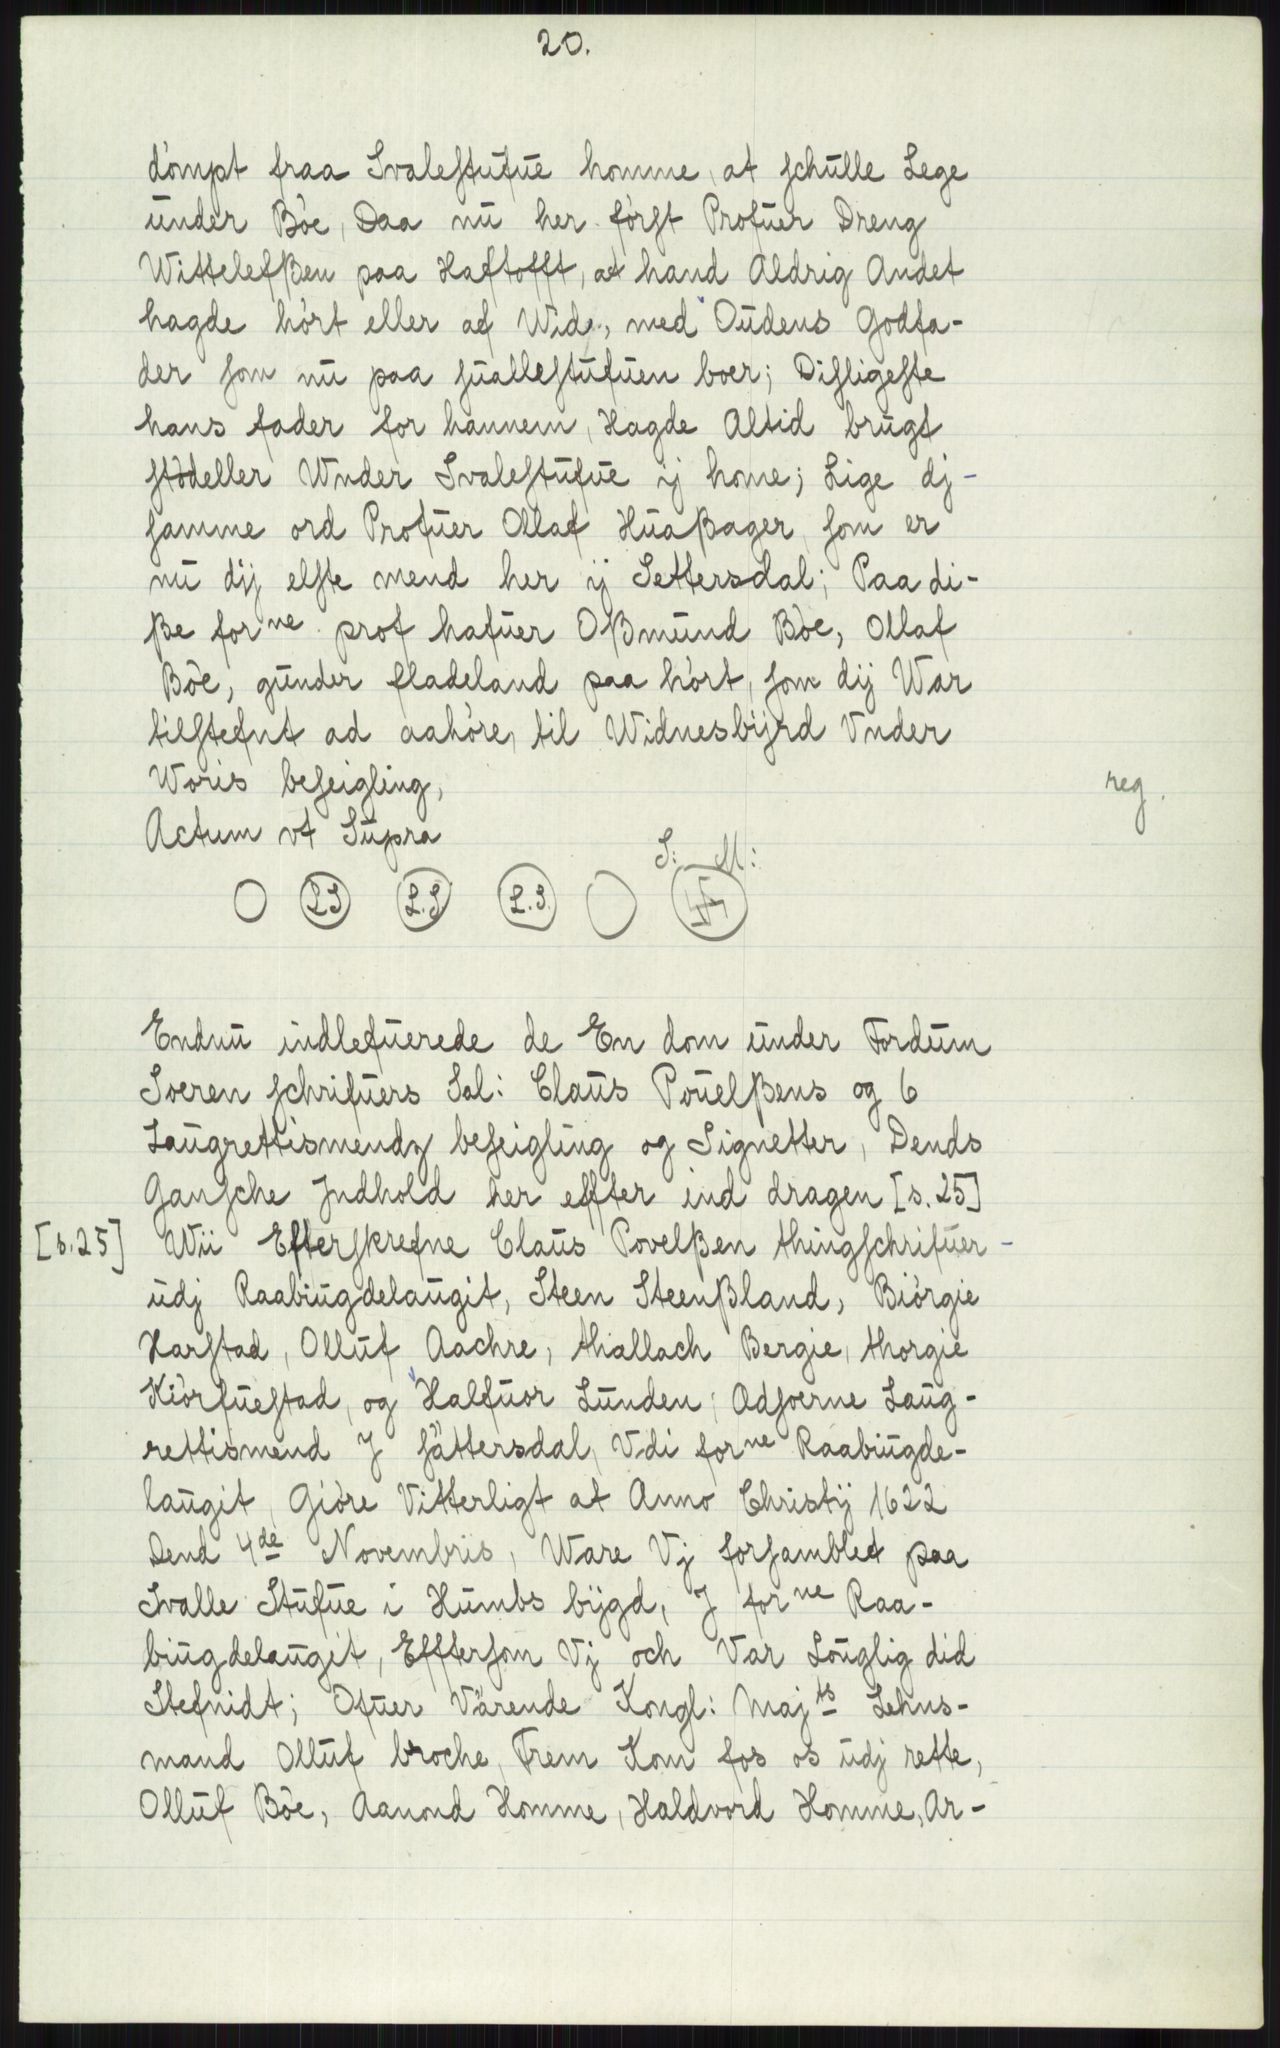 20.
dòmpt fraa Svalestufue homme, at schulle Lege
under Bòe, Daa nu her fòrst Profuer Dreng
Wittelefßen paa Haftofft, at hand Aldrig Andet
hagde hòrt eller af Wide, med Oudens Godfa-
der som nu paa suallestufuen boer; Disligeste
hans fader for hannem, Hagde Altid brugt
stòdeller Wnder Svalestufue ij home; Lige dj-
samme ord Profuer Ollaf Huaßager, som er
nu dij elste mend her ij Settersdal; Paa di-
ße forne prof hafuer Oßmund Bòe, Ollaf
Bòe, gunder fladeland paa hòrt, som dij War
tilstefnt ad aahòre, til Widnesbijrd Vnder
Woris beseigling,
reg.
Actum vt Supra
S: M:
LS L.S L.S.
Endnu indlefuerede de En dom under Fordum
Soeren schrifuers Sal: Claus Pouelßens og 6
Laugrettismends beseigling og Signetter, Dends
Gansche Jndhold her effter ind dragen [s.25]
[s.25] Wii Efterskrefne Claus Povelßen thingschrifuer-
udj Raabiugdelaugit, Steen Steenßland, Biòrgie
Harstad, Olluf Aachre, thallach Bergie, thorgie
Kiòrfuestad, og Halfuor Lunden; Adsoerne Laug-
rettismend J sättersdal, Vdi forne Raabiugde-
laugit, Giòre Vitterligt at Anno Christij 1622
Dend 4de Novembris, Ware Vj forsamblet paa
Svalle Stufue i Humbs bijgd, J forne Raa-
biugdelaugit, Efftersom Vj och Var Louglig did
Stefnidt; Ofuer Värende Kongl: Majts Lehns-
mand Olluf broche, Frem Kom fos os udj rette,
Olluf Bòe, Aanond Homme, Haldvord Homme, Ar-